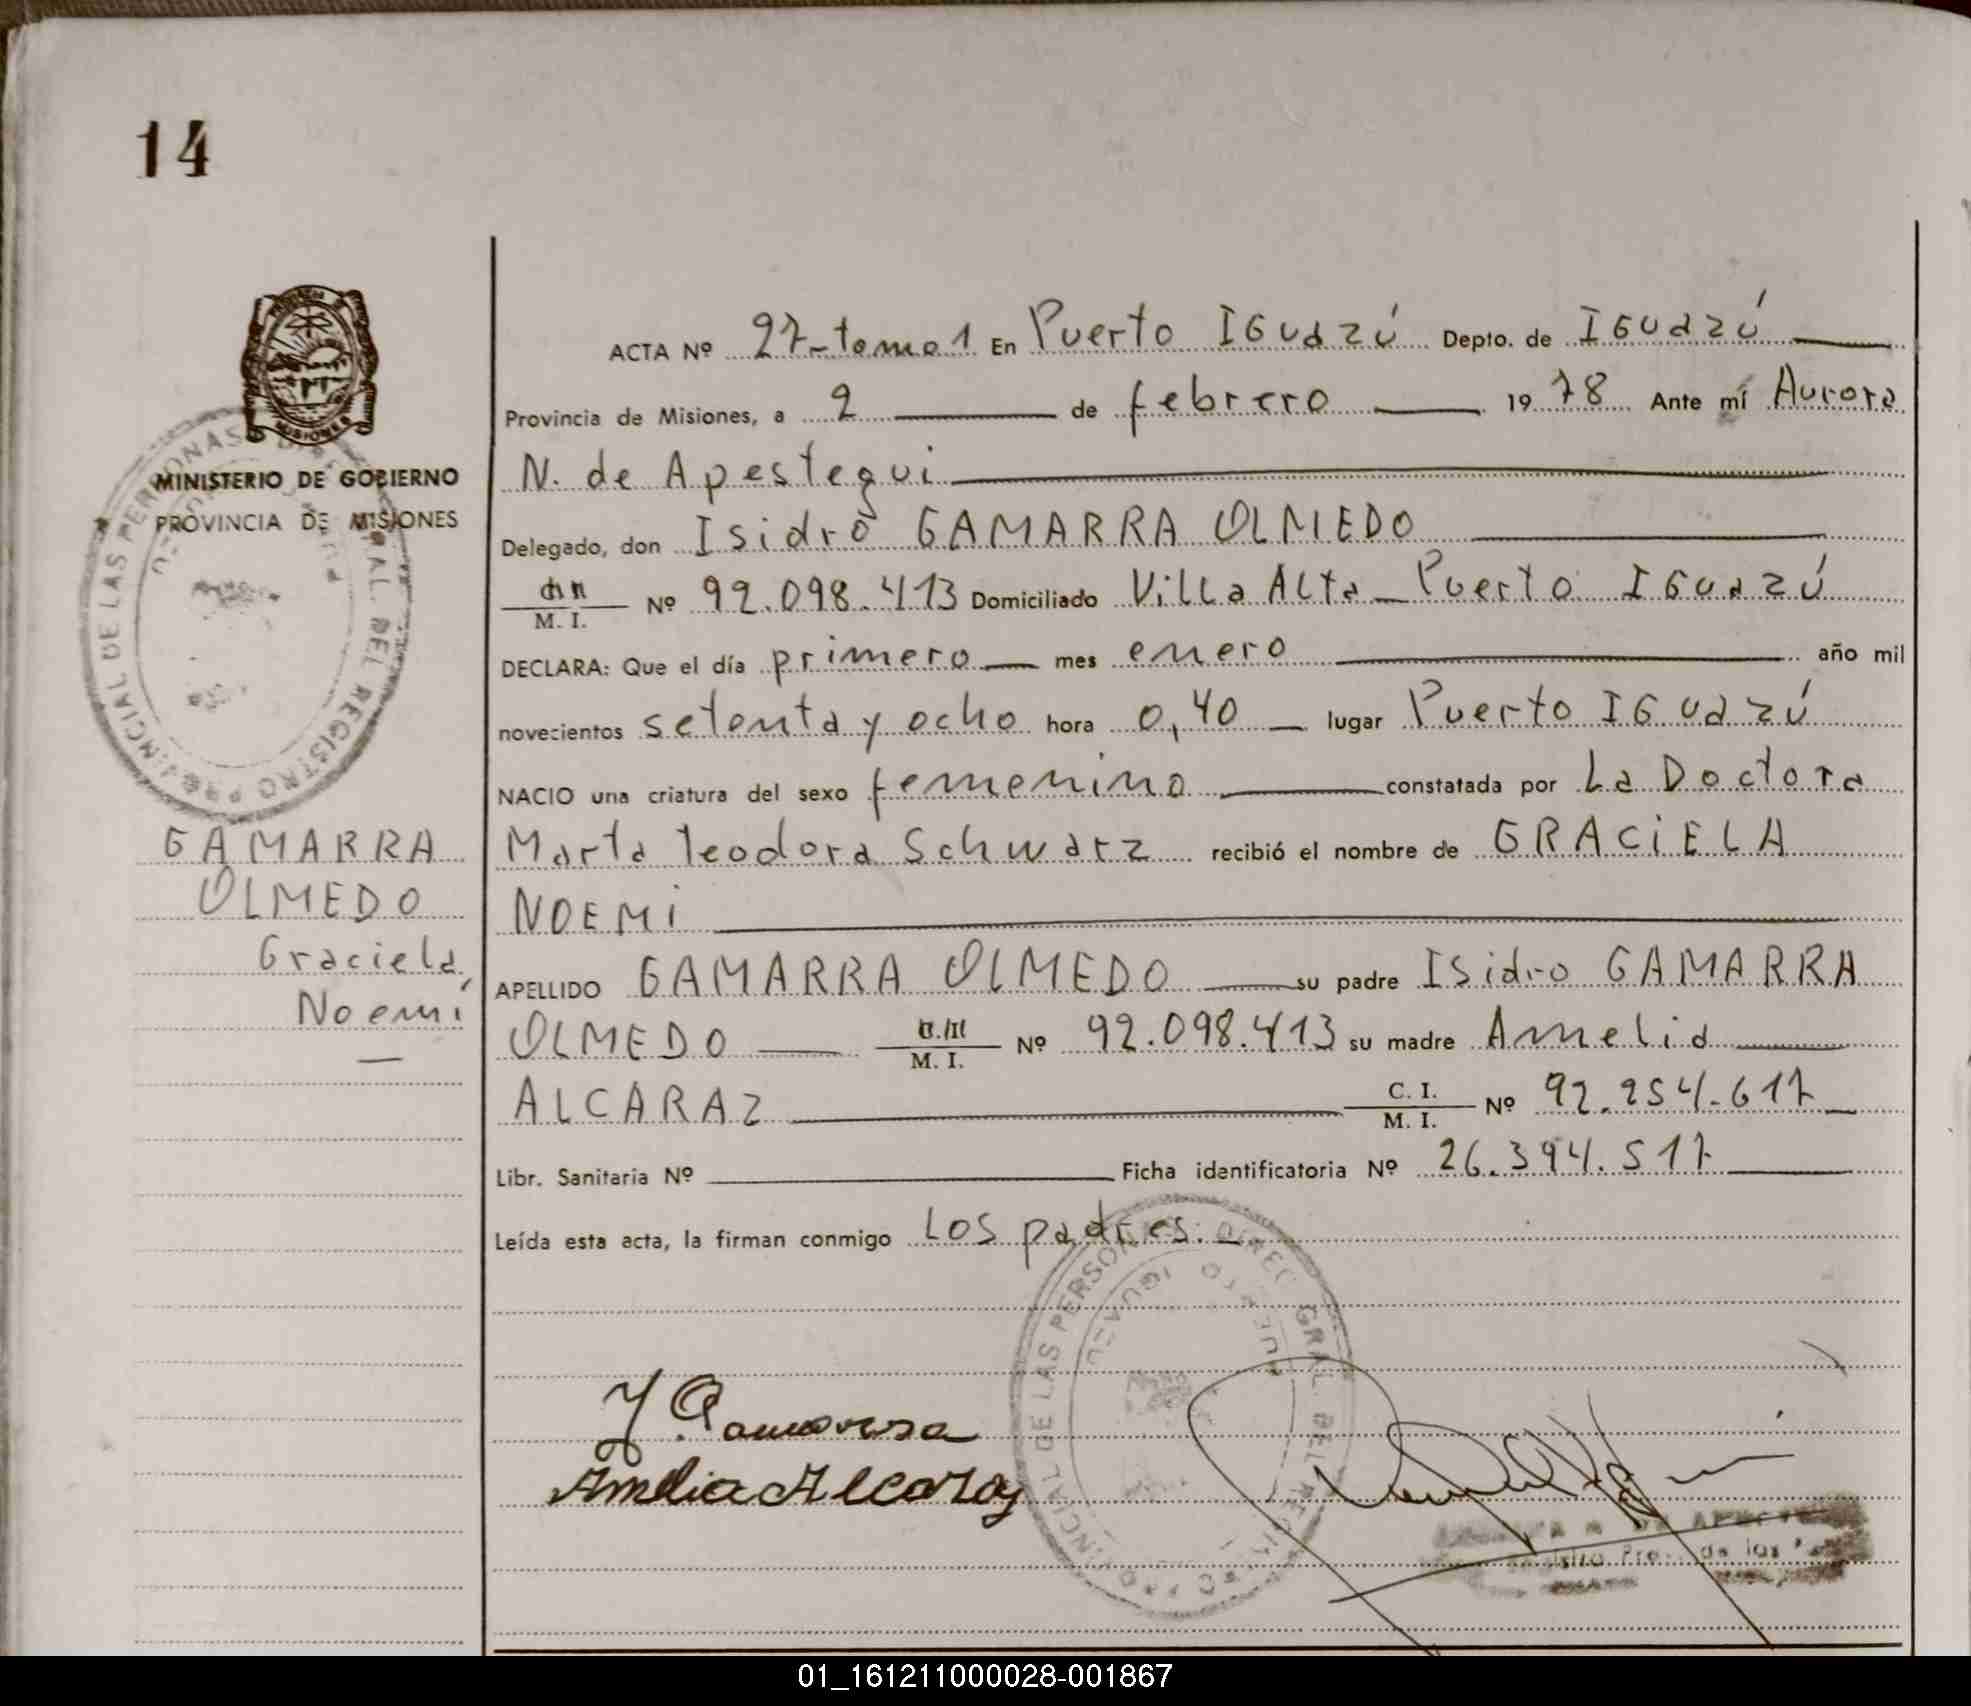 14
MINISTERIO DE GOBIERNO
PROVINCIA DE MISIONES
GAMARRA
OLMEDO
Graciela
Noemí
ACTA Nº 27-tomo 1 En Puerto IGuazú Depto. de IGuazú
Provincia de Misiones, a 2 de febrero 1978 Ante mí Aurora
N. de Apestegui
Delegado, don Isidro GAMARRA OLMEDO
M. I. Nº 92.098.413 Domiciliado Villa Alta - Puerto IGuazú
DECLARA: Que el día primero mes enero año mil
novecientos setenta y ocho hora 0,40 lugar Puerto IGuazú
NACIO una criatura del sexo femenino constatada por La Doctora
Marta Teodora Schwarz recibió el nombre de GRACIELA
NOEMI
APELLIDO GAMARRA OLMEDO su padre Isidro GAMARRA
OLMEDO M. I. Nº 92.098.413 su madre Amelia
ALCARAZ C. I. M. I. Nº 92.254.617
Libr. Sanitaria Nº Ficha identificatoria Nº 26.394.517
Leída esta acta, la firman conmigo Los padres.
Amelia Alcaraz
01_161211000028-001867